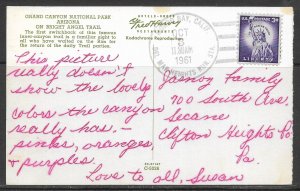 GRAND CANYON NATIONAL PARK
ARIZONA
ON BRIGHT ANGEL TRAIL
The first switchback of this famous
inner-canyon trail is a familiar sight to
all who have waited on the Rim for
the return of the daily Trail parties.
HOTELS • SHOPS
Fred Harvey
RESTAURANTS
Ektachrome Reproduction
CALIF.
OCT
5
AM
1961
U.S. POSTAGE
3¢
LIBERTY
This picture
really doesn't
show the lovely
colors the canyon
really has, -
pinks, oranges,
& purples.
Love to all, Susan
Family
900 South Ave.
Secane
Clifton Heights Po
Pa.